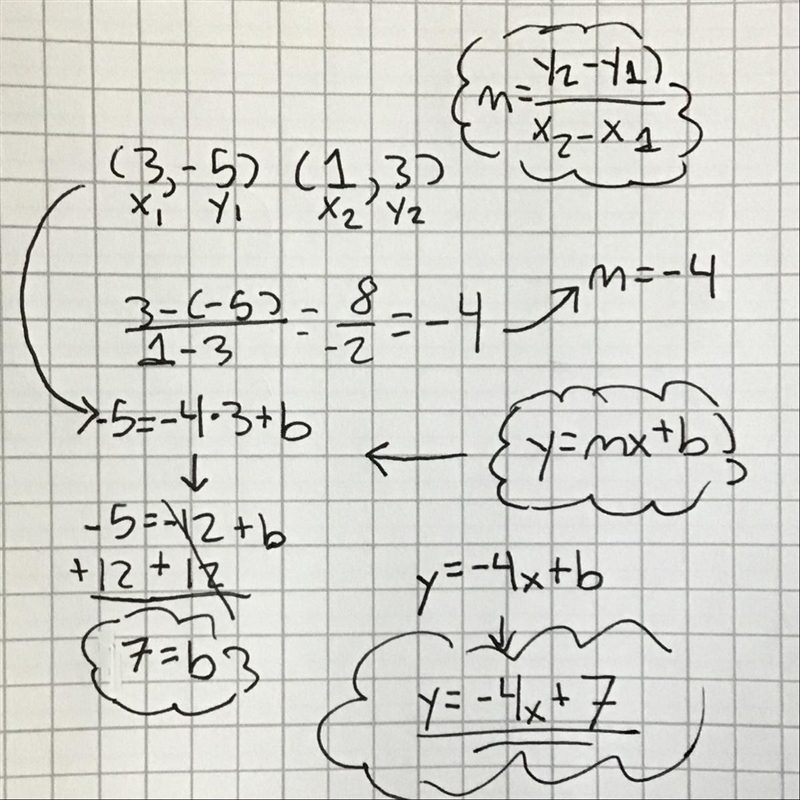 m = y₂ - y₁ / x₂ - x₁
(3, -5) (1, 3)
x₁ y₁ x₂ y₂
3 - (-5) / 1 - 3 = 8 / -2 = -4
m = -4
-5 = -4 · 3 + b
y = mx + b
-5 = -12 + b
+12 +12
7 = b
y = -4x + b
y = -4x + 7